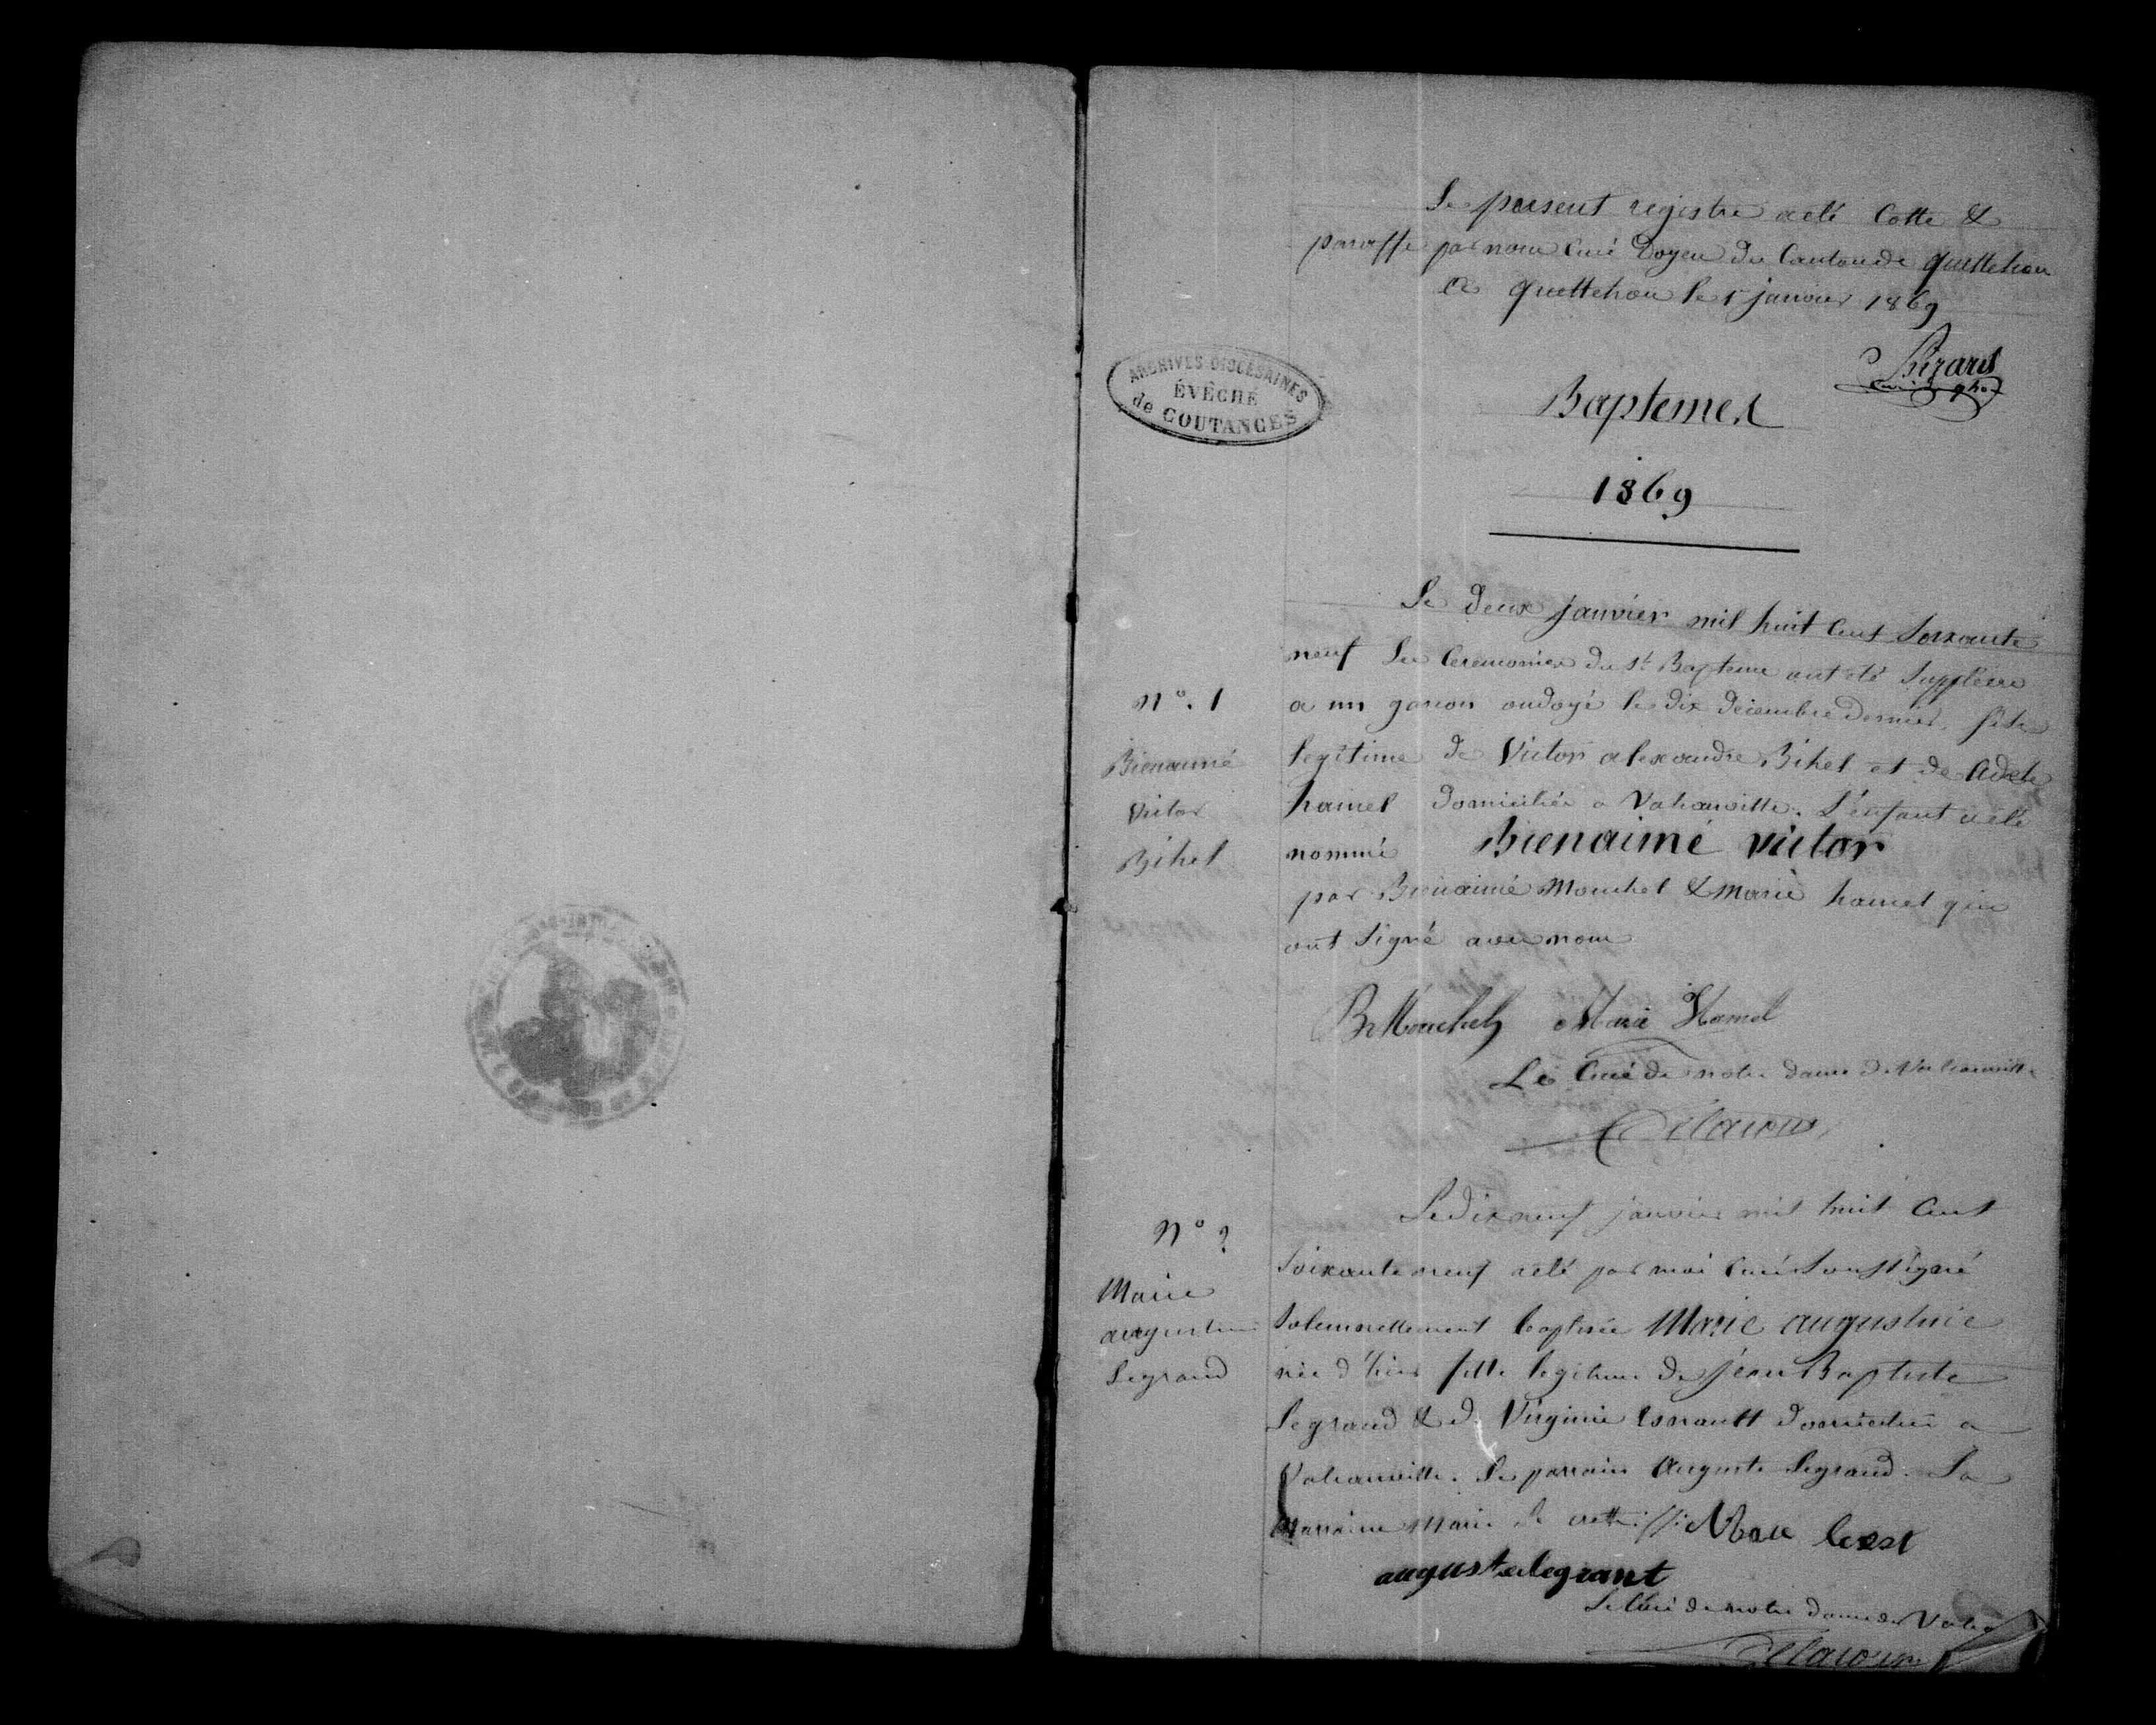 Le present registre a eté Cotte &
paraffé par nous Curé Doyen du Canton de quettehou
a quettehou le 1r janvier 1869
Bezard
ARCHIVES DIOCÉSAINES
ÉVÊCHÉ
de COUTANCES
Baptemes
1869
Le deux janvier mil huit cent soixante
neuf Les Ceremonies du St Bapteme ont été Supplées
n°. 1
a un garçon ondoyé le dix décembre dernier, fils
Bienaimé
legitime de Victor alexandre Bihel et de Adele
Victor
hamel domiciliés a Valcanville. L'enfant a été
Bihel
nommé Bienaimé victor
par Bienaimé Mouchel & Marie hamel qui
ont Signé avec nous
B Mouchel Marie Hamel
Le Curé de notre dame de Valcanville
Delacour
Le dix neuf janvier mil huit Cent
N° 2
Soixante neuf a eté par moi Curé Soussigné
Marie
augustine
Solemnellement baptisée Marie augustine
Legrand
née d'hier fille legitime de jean Baptiste
Legrand & de Virginie Esnault domiciliés a
Valcanville. Le parrain Auguste Legrand. La
Marraine Marie
auguste legrant
Le Curé de notre Dame de Valca
Delacour